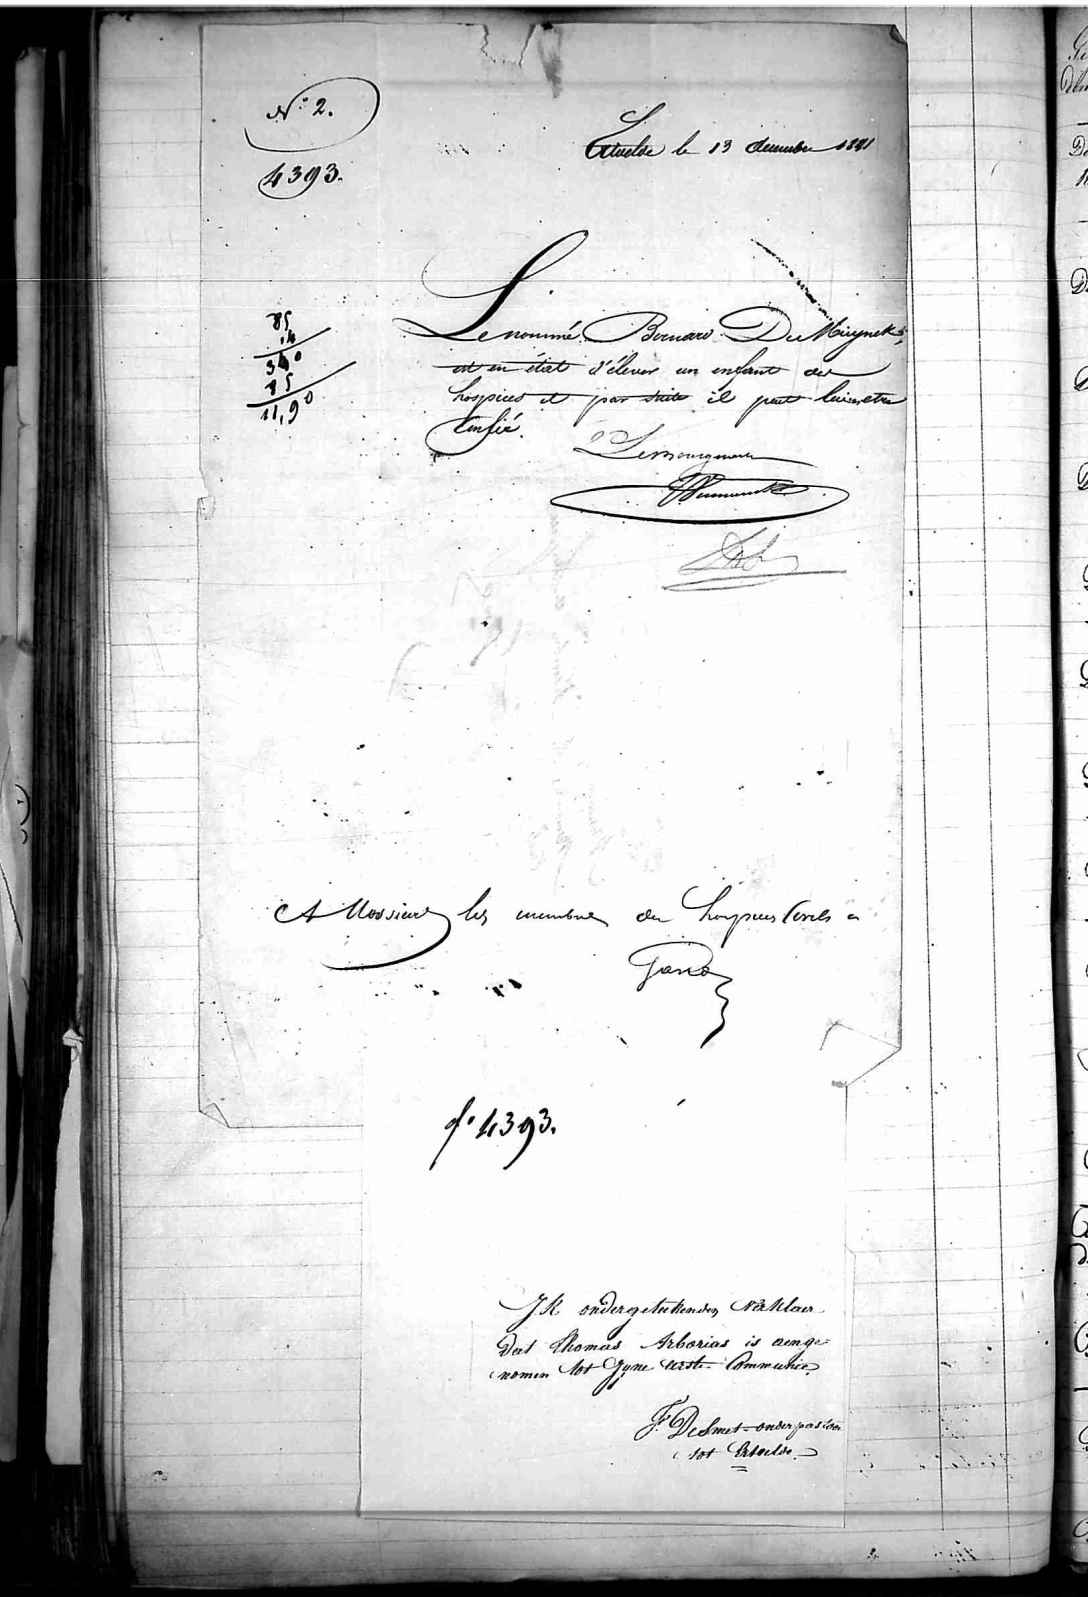 N° 2.
4393.
Ertvelde le 13 decembre
85
14
340
85
11,90
Le nommé Bernard De Muynck
est en état d'élever un enfant des
hospices et par suite il peut lui etre
Confié.
Le Bourgmestre
A Messieurs les membres des hospices Civils a
Gand
f° 4393.
Ik ondergeteekenden Verklaer
dat Thomas Arborias is aenge-
nomen tot Zyne eerste Communie
F. DeSmet onderpastoor
tot Ertvelde